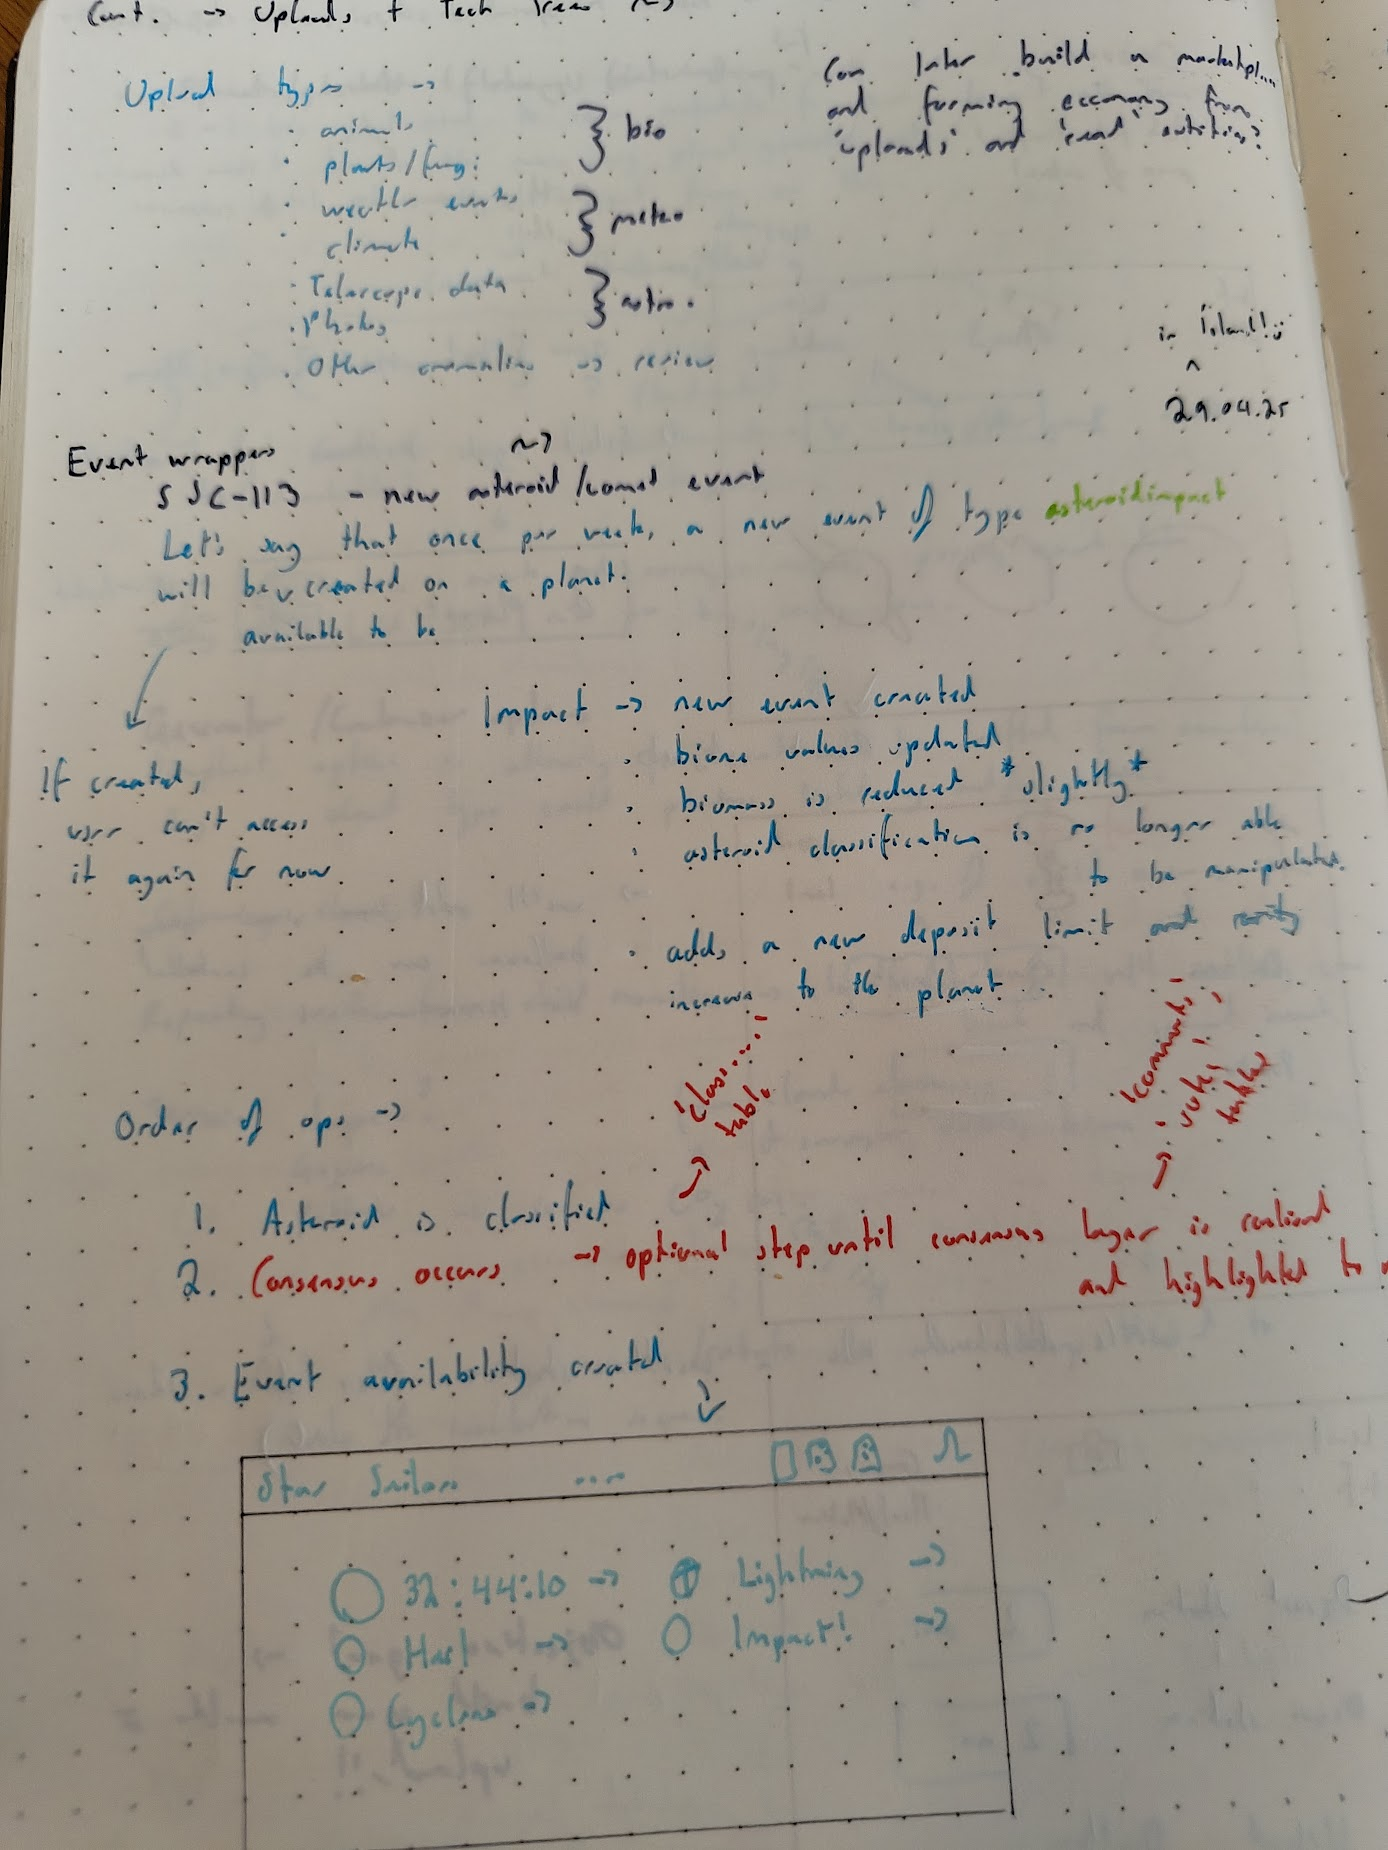 Cont. -> Uploads + Tech Trees ~>
Upload types ->
· animals
· plants/fungi
} bio
· weather events
· climate
} meteo
· Telescope data
· Photos
} astro.
· Other anomalies -> review
Can later build a marketpl....
and farming economy from
'uploads' and 'real' entities?
in Island! ü
^
29.04.25
Event wrappers ~>
SSC-113 - new asteroid/comet event
Let's say that once per week, a new event of type asteroidimpact
will be v created on a planet.
available to be
If created,
user can't access
it again for now
Impact -> new event created
· biome values updated
· biomass is reduced *slightly*
· asteroid classification is no longer able
to be manipulated
· adds a new deposit limit and rarity
increase to the planet
'class....'
table
'comments'
'votes'
tables
Order of ops ->
1. Asteroid is classified
2. Consensus occurs -> optional step until consensus layer is realised
and highlighted to
3. Event availability created
Star Sailors ....
32:44:10 -> Lightning ->
-> Impact! ->
Cyclone ->